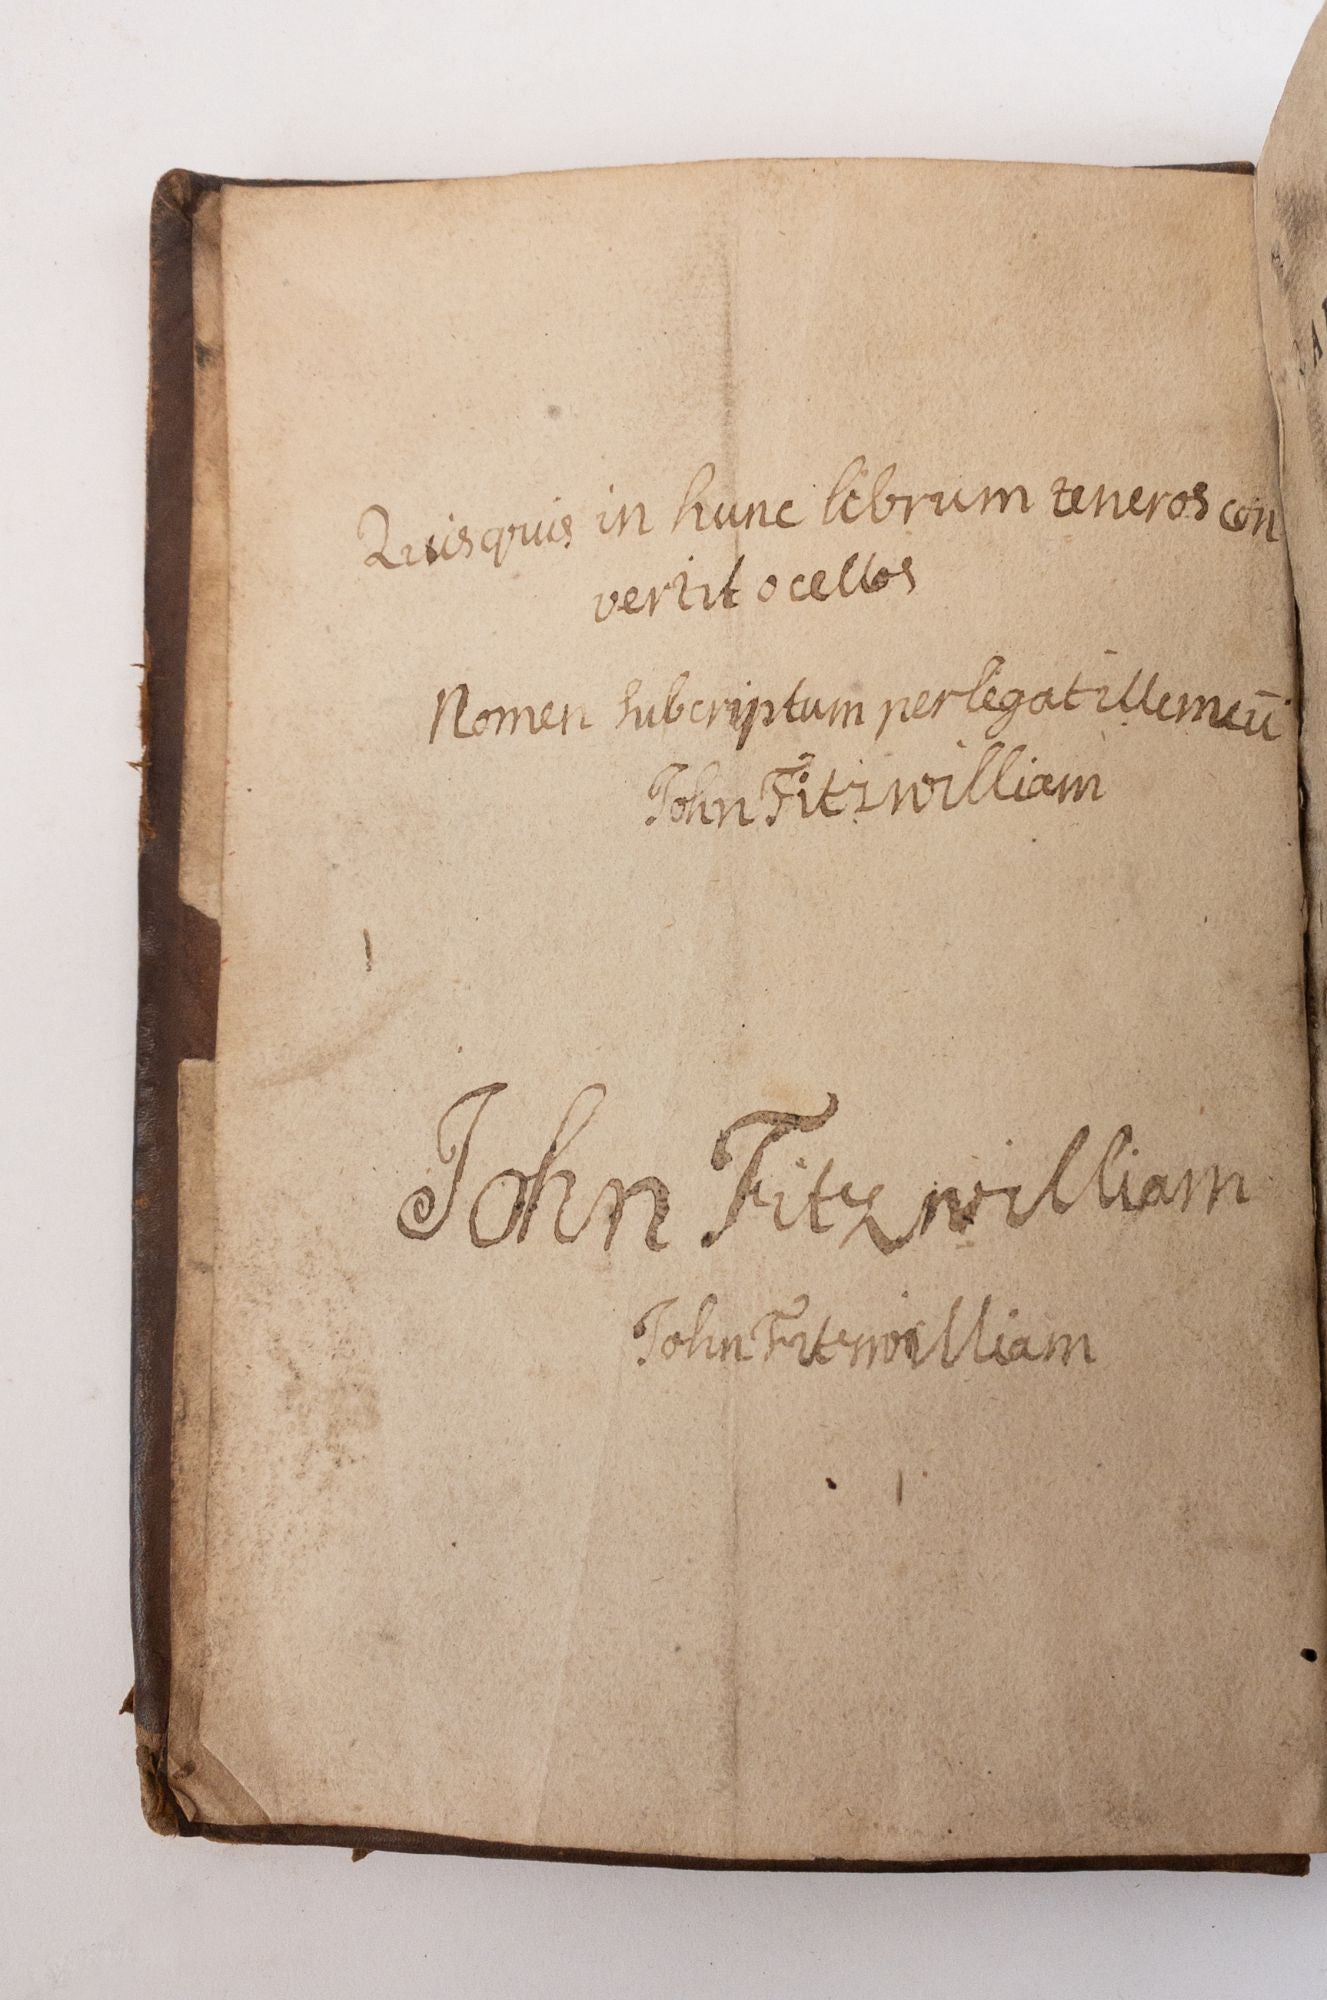 Quisquis in hunc librum teneros con
vertit ocellos
Nomen subcriptum perlegat ille meū
John Fitzwilliam
John Fitzwilliam
John Fitzwilliam